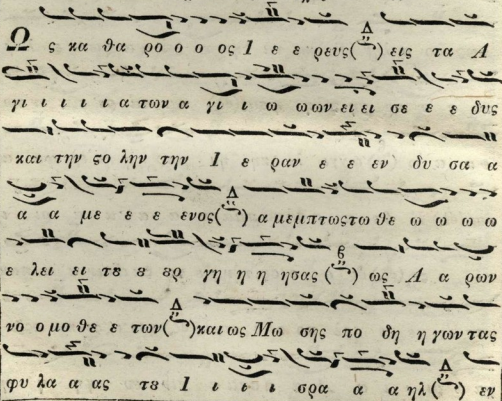 Ως κα θα ρο ο ο ος Ι ε ε ρευς(Δ) εις τα Α
γι ι ι ι ι α των α γι ι ω ω ων ει ει σε ε ε δυς
και την ϛο λην την Ι ε ραν ε ε εν δυ σα α
α α με ε ε ενος(Δ) α μεμπτως τω θε ω ω ω ω
ε λει ει τȣ ε ερ γη η η ησας (β) ως Α α ρων
νο ο μο θε ε των(Δ) και ως Μω σης πο δη η γων τας
φυ λα α ας τȣ Ι ι ι ι σρα α α ηλ(Δ) εν